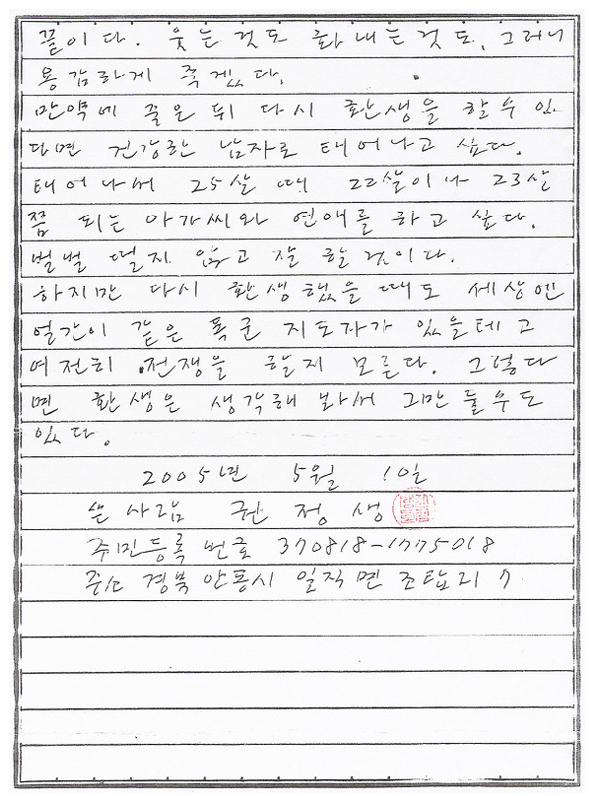 끝이다. 웃는 것도 화내는 것도. 그러니
용감하게 죽겠다.
만약에 죽은 뒤 다시 환생을 할 수 있
다면 건강한 남자로 태어나고 싶다.
태어나서 25살 때 22살이나 23살
쯤 되는 아가씨와 연애를 하고 싶다.
벌벌 떨지 않고 잘 할 것이다.
하지만 다시 환생했을 때도 세상엔
얼간이 같은 폭군 지도자가 있을테고
여전히 전쟁을 할지 모른다. 그렇다
면 환생은 생각해 봐서 그만 둘 수도
있다.
2005년 5월 1일
쓴 사람 권정생
주민등록 번호 370818-1775018
주소 경북 안동시 일직면 조탑리 7